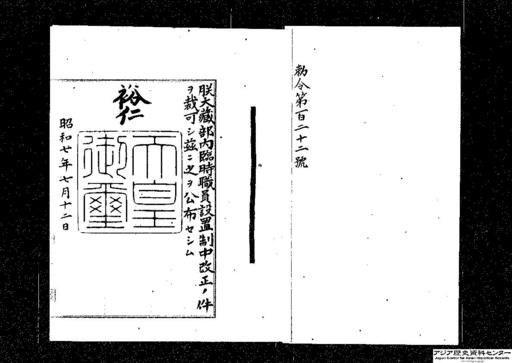 勅令第百二十二號
朕大藏部內臨時職員設置制中改正ノ件
ヲ裁可シ玆ニ之ヲ公布セシム
裕仁
天皇
御璽
昭和七年七月十二日
アジア歴史資料センター
Japan Center for Asian Historical Records